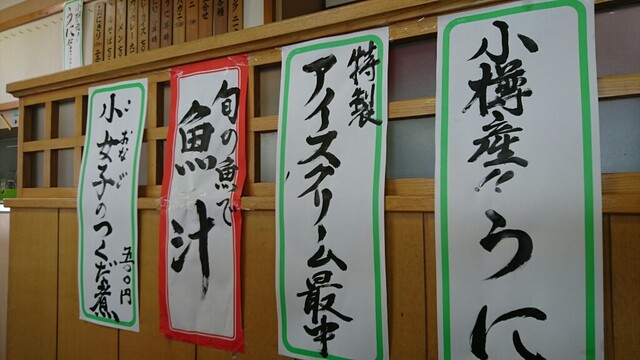 小樽産〃うに
特製
アイスクリーム最中
旬の魚で
魚汁
小女子のつくだ煮
こおなご
五〇〇円